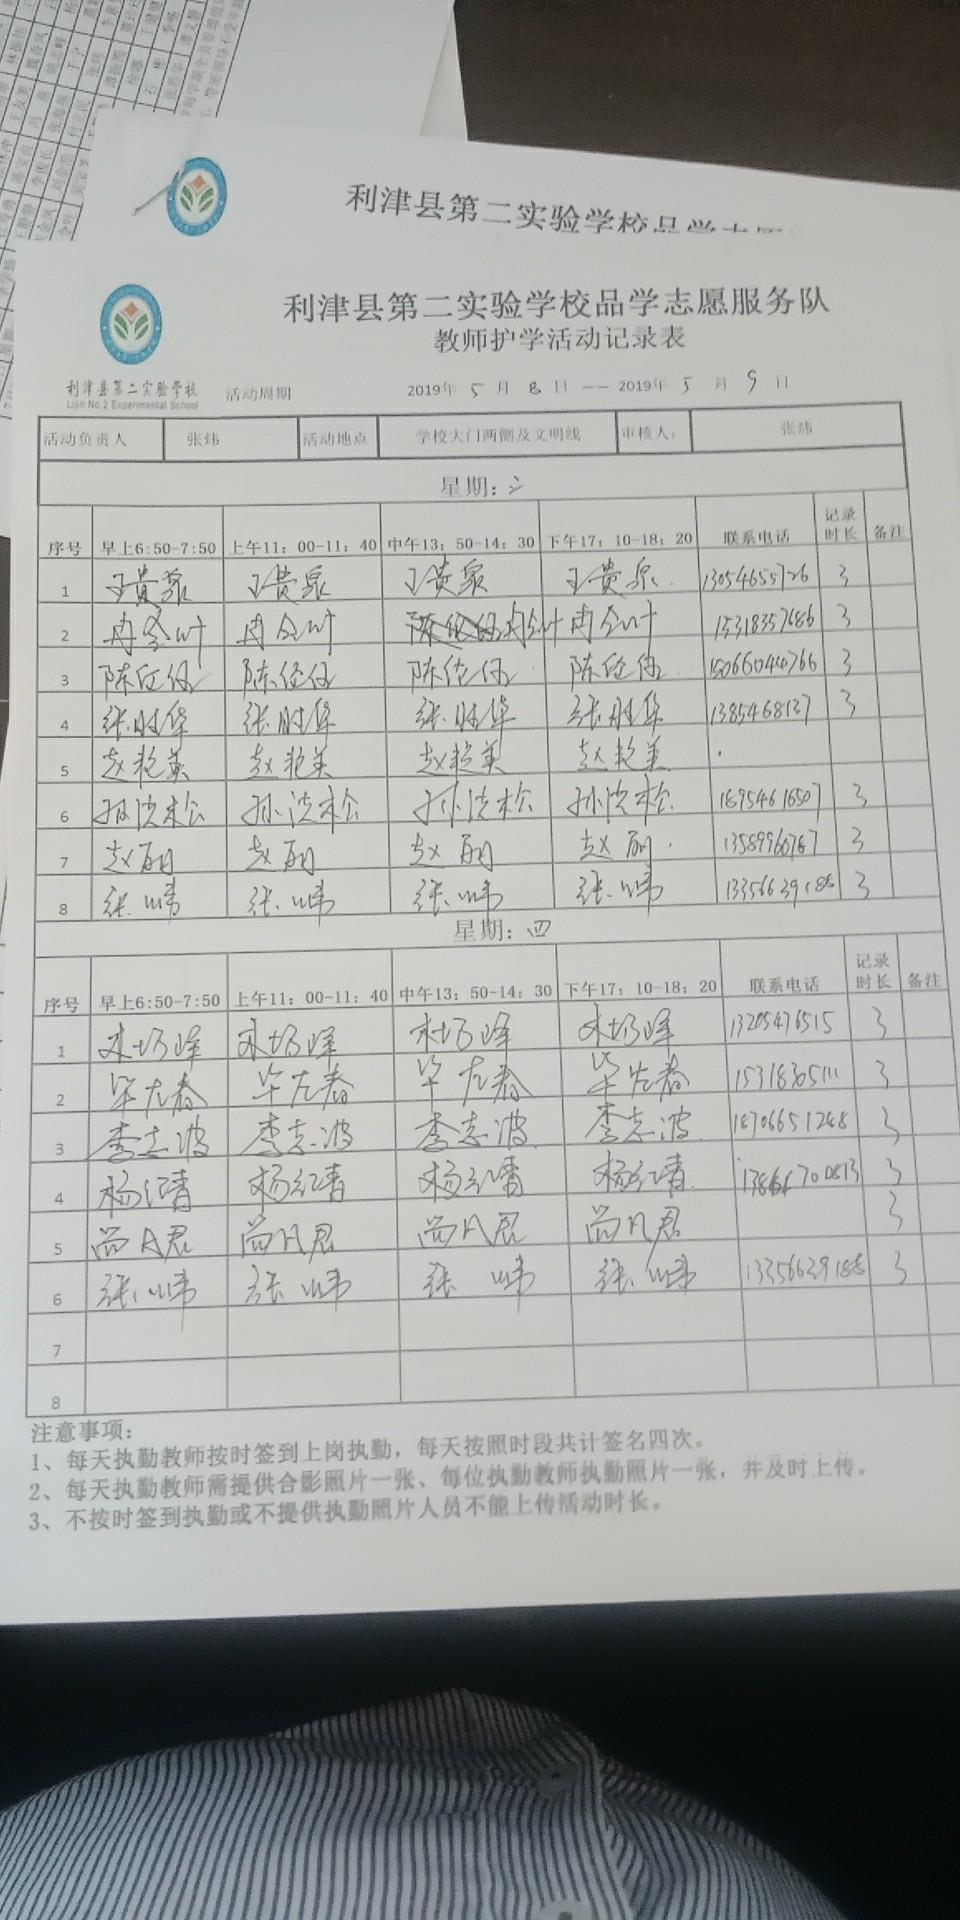 利津县第二实验学校品学志愿服务队
利津县第二实验学校品学志愿服务队
教师护学活动记录表
利津县第二实验学校 活动周期 2019年 5 月 8 日 —— 2019年 5 月 9 日
Lijin No.2 Experimental School
活动负责人 张炜 活动地点 学校大门两侧及文明线 审核人: 张炜
星期:三
序号 早上6:50-7:50 上午11:00-11:40 中午13:50-14:30 下午17:10-18:20 联系电话 记录时长 备注
1 王贵泉 王贵泉 王贵泉 王贵泉 13054655726 3
2 15318357686 3
3 15066044766 3
4 张胜华 张胜华 张胜华 张胜华 1385468137 3
5 赵艳美 赵艳美 赵艳美 赵艳美
6 孙洪松 孙洪松 孙洪松 孙洪松 3
7 赵丽 赵丽 赵丽 赵丽 13589960767 3
8 张炜 张炜 张炜 张炜 13356639188 3
星期:四
序号 早上6:50-7:50 上午11:00-11:40 中午13:50-14:30 下午17:10-18:20 联系电话 记录时长 备注
1 13205476515 3
2 15318305111 3
3 李志波 李志波 李志波 李志波 18706651248 3
4 杨红青 杨红青 杨红青 杨红青 3
5 尚凡君 尚凡君 尚凡君 尚凡君 3
6 张炜 张炜 张炜 张炜 13356639188 3
7
8
注意事项:
1、每天执勤教师按时签到上岗执勤,每天按照时段共计签名四次。
2、每天执勤教师需提供合影照片一张、每位执勤教师执勤照片一张,并及时上传。
3、不按时签到执勤或不提供执勤照片人员不能上传活动时长。